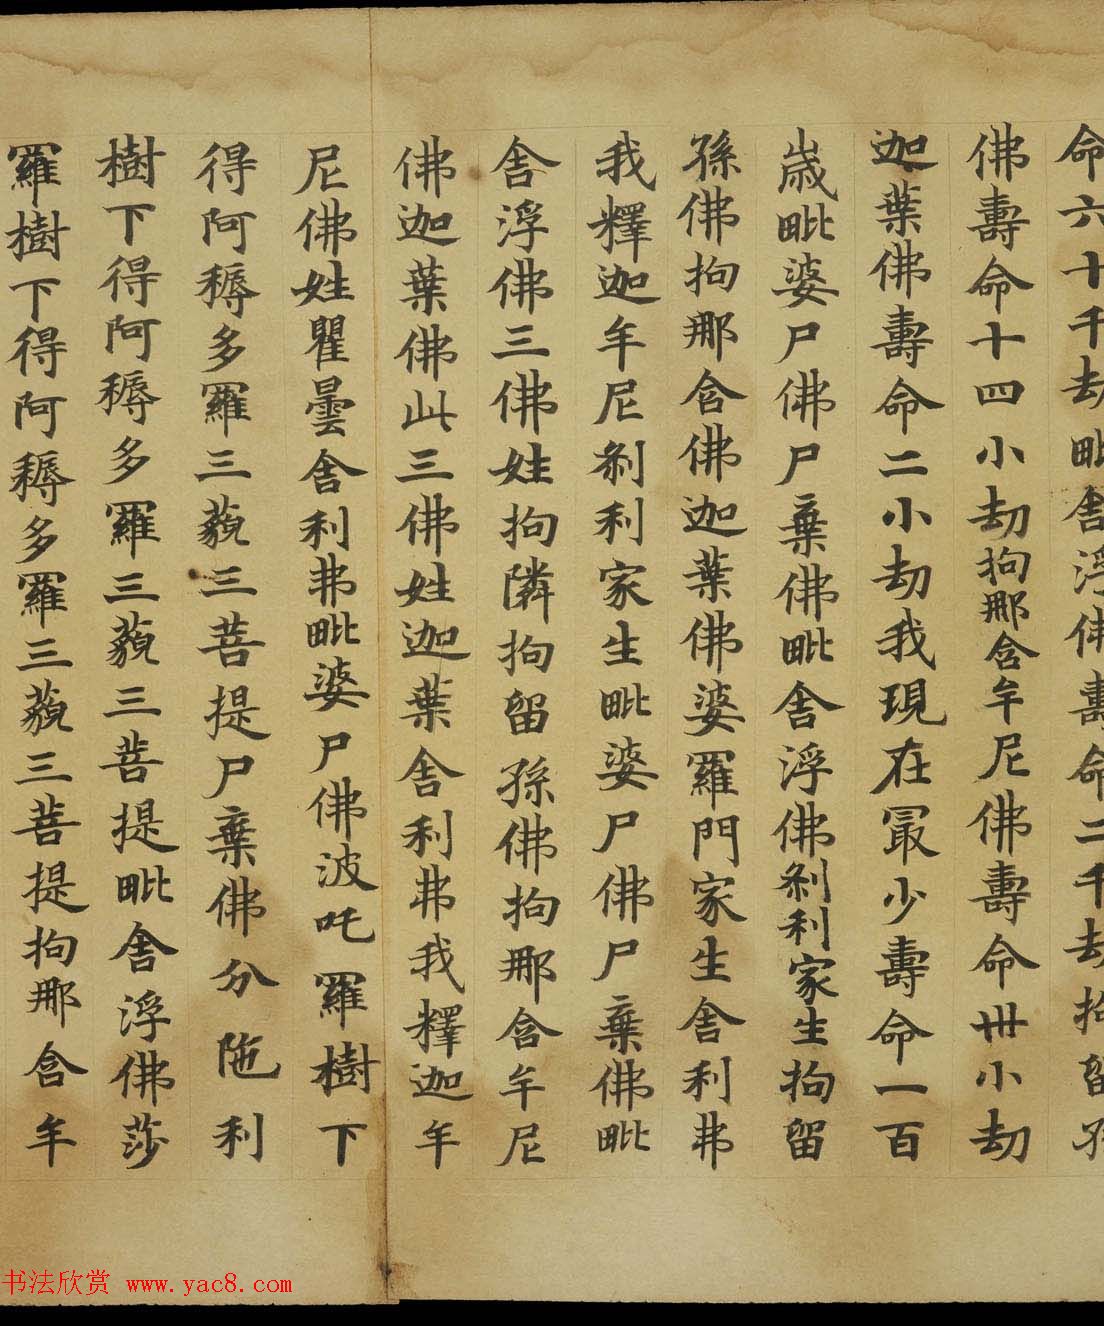 命六十千劫毗舍浮佛壽命二千劫拘留孫
佛壽命十四小劫拘那含牟尼佛壽命卅小劫
迦葉佛壽命二小劫我現在冣少壽命一百
歲毗婆尸佛尸棄佛毗舍浮佛剎利家生拘留
孫佛拘那含佛迦葉佛婆羅門家生舍利弗
我釋迦牟尼剎利家生毗婆尸佛尸棄佛毗
舍浮佛三佛姓拘隣拘留孫佛拘那含牟尼
佛迦葉佛此三佛姓迦葉舍利弗我釋迦牟
尼佛姓瞿曇舍利弗毗婆尸佛波吒羅樹下
得阿耨多羅三藐三菩提尸棄佛分陁利
樹下得阿耨多羅三藐三菩提毗舍浮佛莎
羅樹下得阿耨多羅三藐三菩提拘那含牟
书法欣赏 www.yac8.com